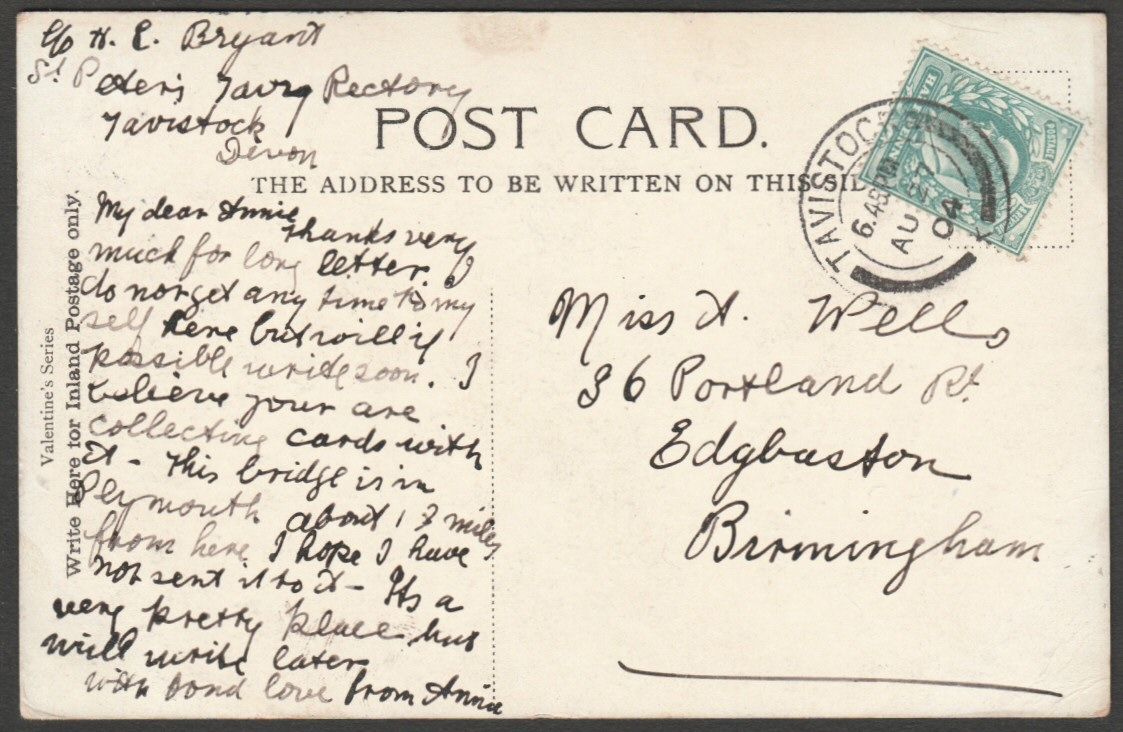 c/o H. E. Bryant
St Peter's Tavy Rectory
Tavistock
Devon
POST CARD.
THE ADDRESS TO BE WRITTEN ON THIS SID
Valentine's Series
Write Here for Inland Postage only.
My dear Annie
thanks very
much for long letter. I
do not get any time to my
self here but will if
possible write soon. I
believe your are
collecting cards with
- This bridge is in
Plymouth about 17 miles
from here I hope I have
not sent it to - Its a
very pretty place but
will write later
with fond love from Annie
TAVISTOCK
6.45PM
AU 27
04
POSTAGE
Miss A. Wells
36 Portland Rd
Edgbaston
Birmingham